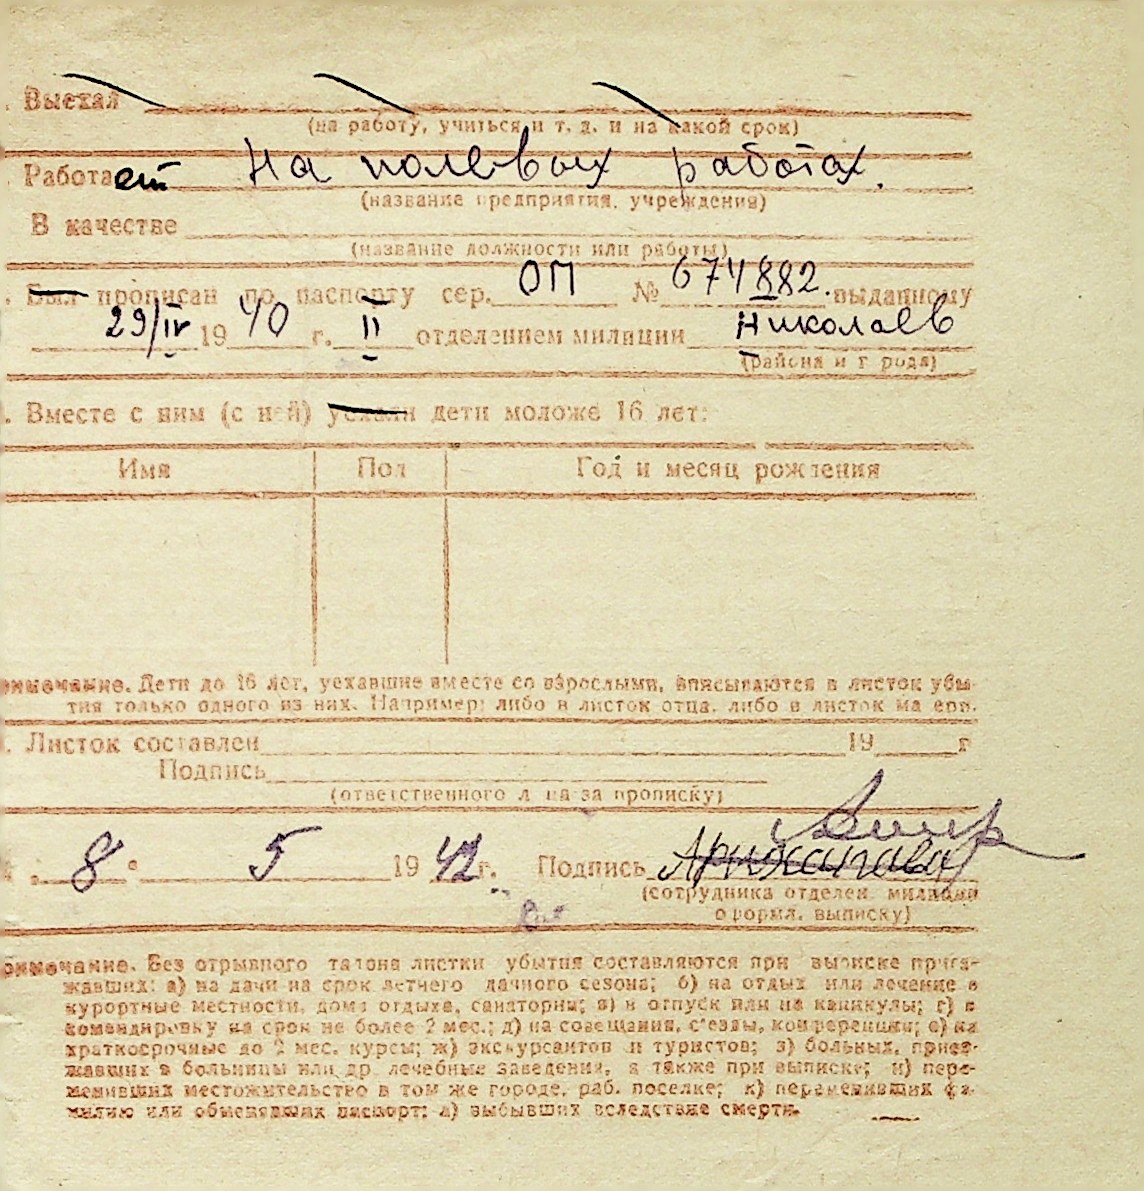 . Выехал
(на работу, учиться и т. д. и на какой срок)
Работает На полевых работах.
(название предприятия, учреждения)
В качестве
(название должности или работы)
. Был прописан по паспорту сер. ОП № 674882. выданному
29/IV 1940 г. II отделением милиции Николаев
(района и города)
. Вместе с ним (с ней) уехали дети моложе 16 лет:
Имя Пол Год и месяц рождения
римечание. Дети до 16 лет, уехавшие вместе со взрослыми, вписываются в листок убы-
тия только одного из них. Например: либо в листок отца, либо в листок матери.
. Листок составлен 19 г
Подпись
(ответственного лица за прописку)
8 5 1942 г. Подпись
(сотрудника отделен. милиции
оформл. выписку)
римечание. Без отрывного талона листки убытия составляются при выписке приез-
жавших: а) на дачи на срок летнего дачного сезона; б) на отдых или лечение в
курортные местности, дома отдыха, санатории; в) в отпуск или на каникулы; г) в
командировку на срок не более 2 мес.; д) на совещания, съезды, конференции; е) на
краткосрочные до 2 мес. курсы; ж) экскурсантов и туристов; з) больных, приез-
жавших в больницы или др. лечебные заведения, а также при выписке; и) пере-
менивших местожительство в том же городе, раб. поселке; к) переменивших фа-
милию или обменявших паспорт; л) выбывших вследствие смерти.